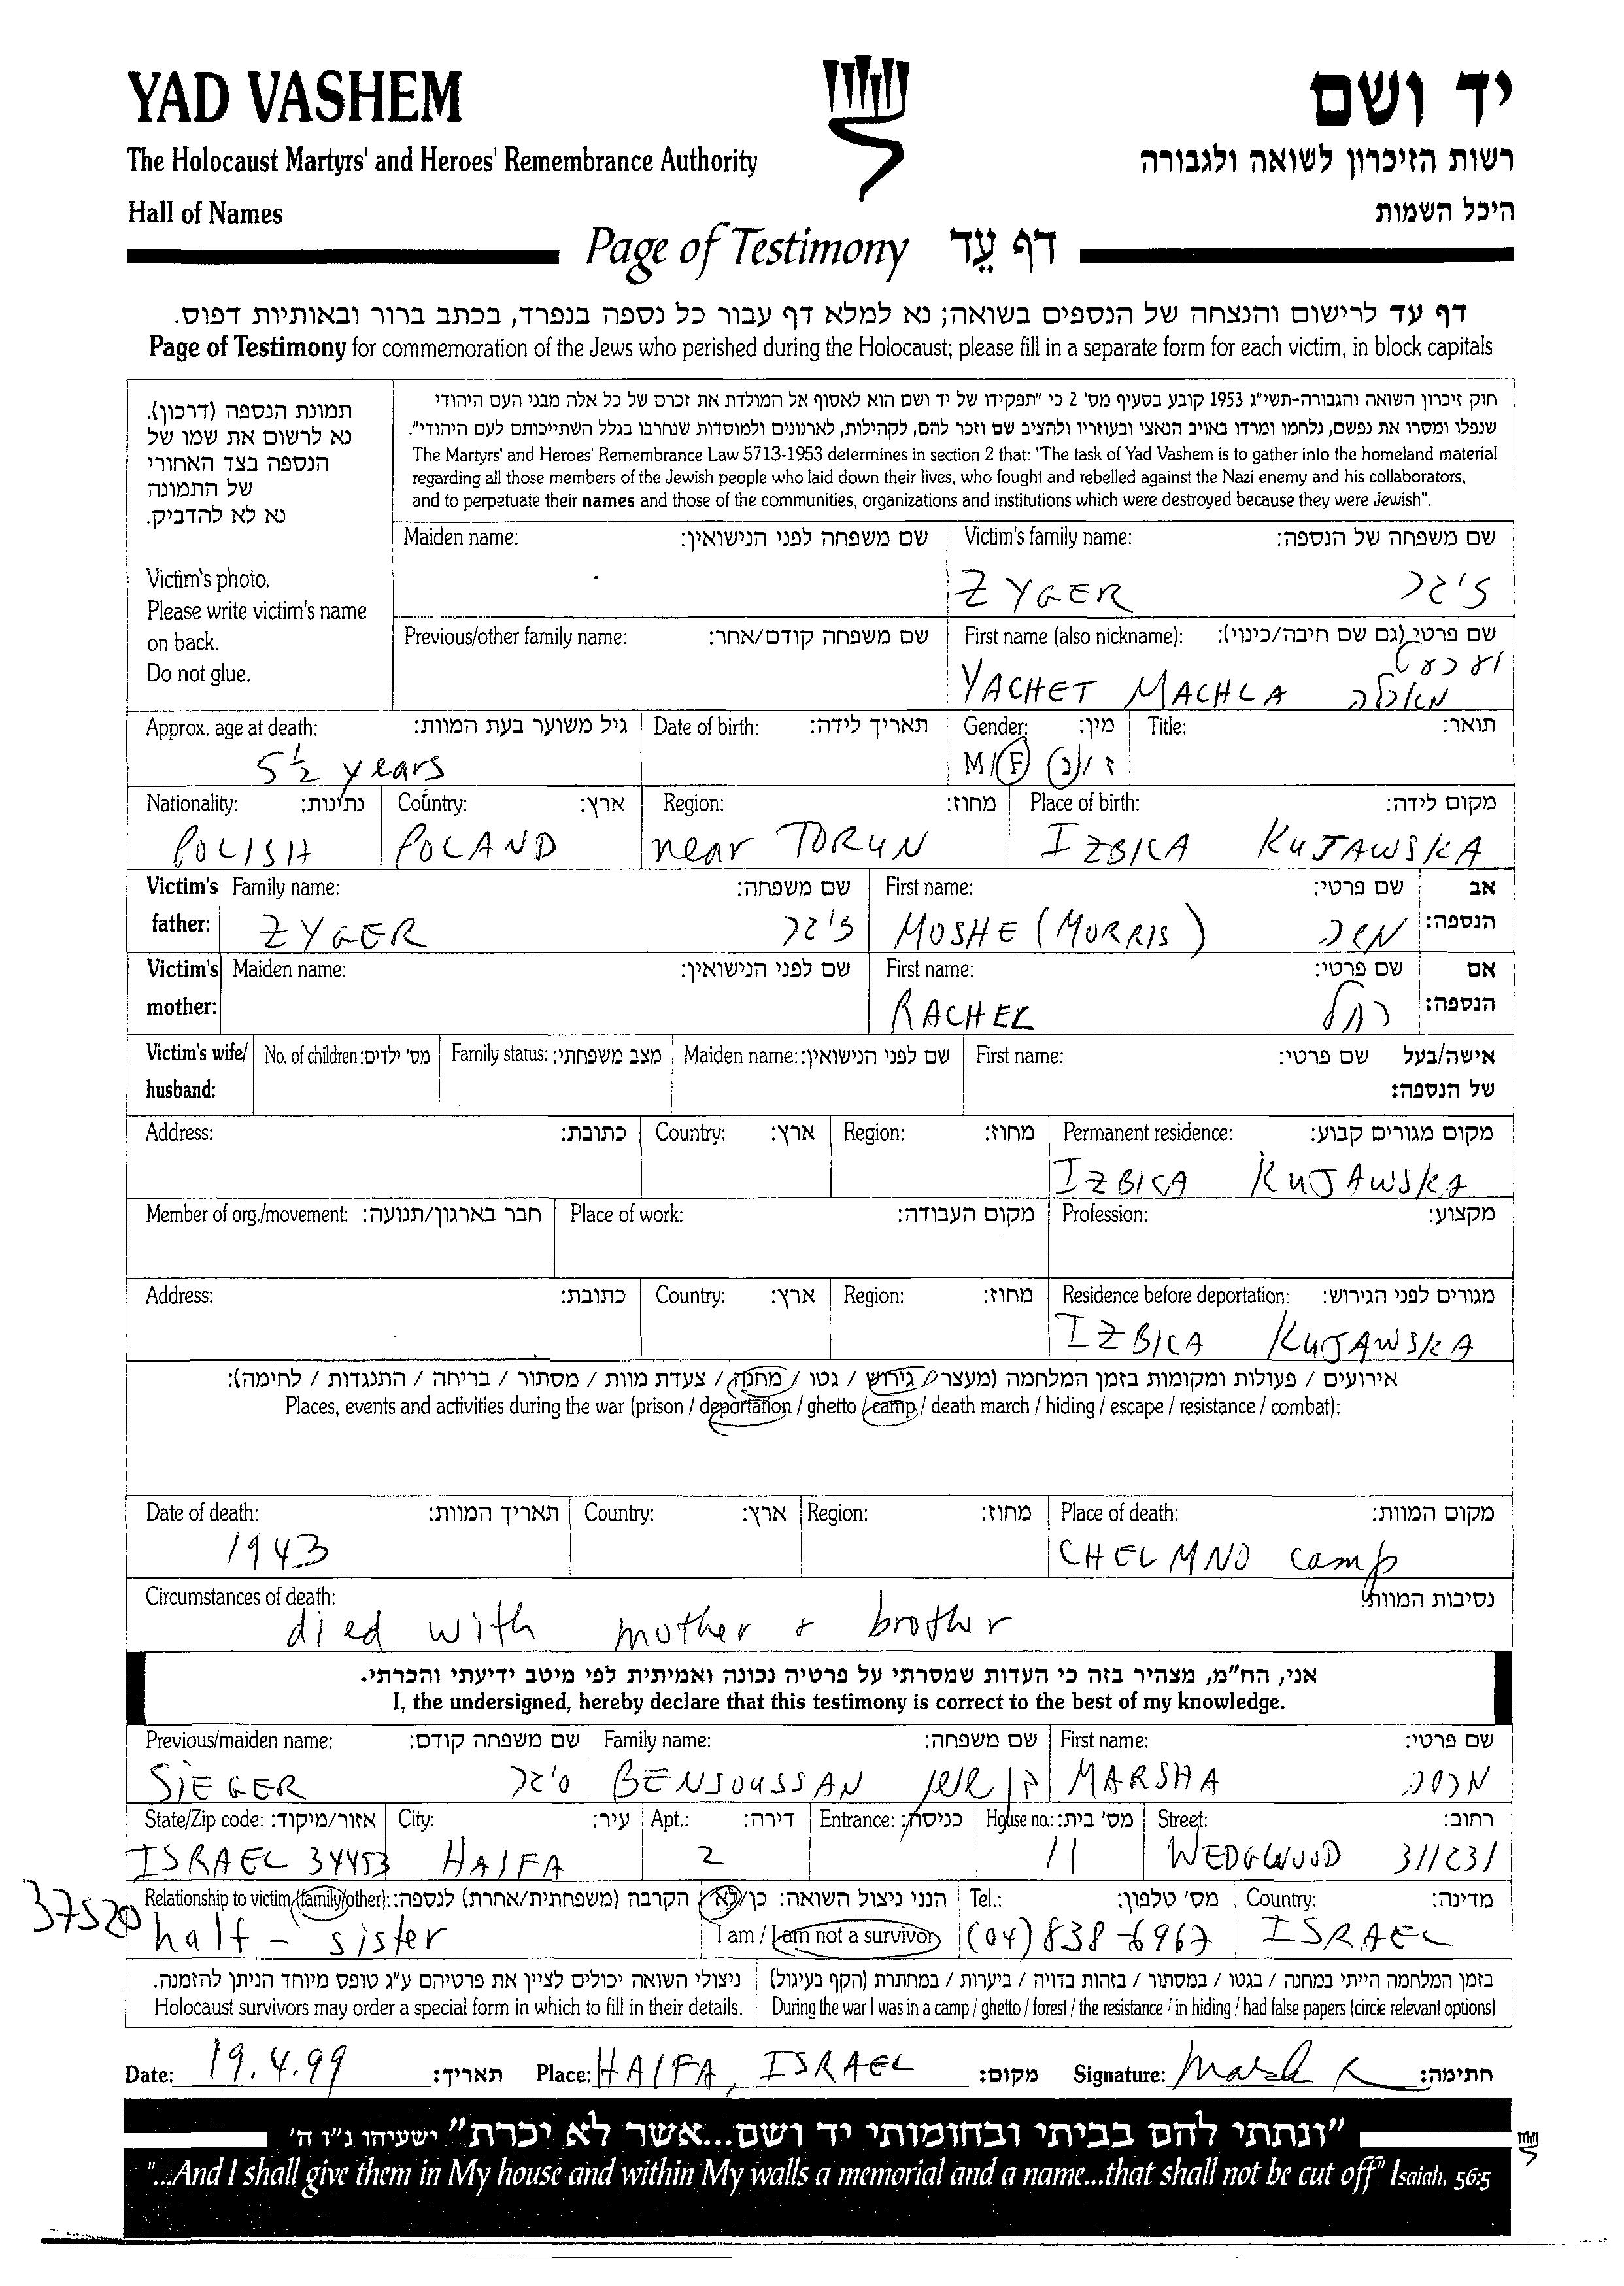 YAD VASHEM יד ושם
The Holocaust Martyrs' and Heroes' Remembrance Authority רשות הזיכרון לשואה ולגבורה
Hall of Names היכל השמות
Page of Testimony דף עֵד
דף עד לרישום והנצחה של הנספים בשואה; נא למלא דף עבור כל נספה בנפרד, בכתב ברור ובאותיות דפוס.
Page of Testimony for commemoration of the Jews who perished during the Holocaust; please fill in a separate form for each victim, in block capitals
תמונת הנספה (דרכון).
נא לרשום את שמו של
הנספה בצד האחורי
של התמונה
נא לא להדביק.
Victim's photo.
Please write victim's name
on back.
Do not glue.
חוק זיכרון השואה והגבורה-תשי"ג 1953 קובע בסעיף מס' 2 כי "תפקידו של יד ושם הוא לאסוף אל המולדת את זכרם של כל אלה מבני העם היהודי
שנפלו ומסרו את נפשם, נלחמו ומרדו באויב הנאצי ובעוזריו ולהציב שם וזכר להם, לקהילות, לארגונים ולמוסדות שנחרבו בגלל השתייכותם לעם היהודי".
The Martyrs' and Heroes' Remembrance Law 5713-1953 determines in section 2 that: "The task of Yad Vashem is to gather into the homeland material
regarding all those members of the Jewish people who laid down their lives, who fought and rebelled against the Nazi enemy and his collaborators,
and to perpetuate their names and those of the communities, organizations and institutions which were destroyed because they were Jewish".
Maiden name: שם משפחה לפני הנישואין: Victim's family name: שם משפחה של הנספה:
ZYGER זיגר
Previous/other family name: שם משפחה קודם/אחר: First name (also nickname): שם פרטי (גם שם חיבה/כינוי):
YACHET MACHLA מאכלה
Approx. age at death: גיל משוער בעת המוות: Date of birth: תאריך לידה: Gender: מין: Title: תואר:
5½ years M/F ז/נ
Nationality: נתינות: Country: ארץ: Region: מחוז: Place of birth: מקום לידה:
POLISH POLAND near TORUN IZBICA KUJAWSKA
Victim's father: Family name: שם משפחה: First name: שם פרטי: אב הנספה:
ZYGER זיגר MOSHE (MORRIS) משה
Victim's mother: Maiden name: שם לפני הנישואין: First name: שם פרטי: אם הנספה:
RACHEL רחל
Victim's wife/ husband: No. of children: מס' ילדים: Family status: מצב משפחתי: Maiden name: שם לפני הנישואין: First name: שם פרטי: אישה/בעל של הנספה:
Address: כתובת: Country: ארץ: Region: מחוז: Permanent residence: מקום מגורים קבוע:
IZBICA KUJAWSKA
Member of org./movement: חבר בארגון/תנועה: Place of work: מקום העבודה: Profession: מקצוע:
Address: כתובת: Country: ארץ: Region: מחוז: Residence before deportation: מגורים לפני הגירוש:
IZBICA KUJAWSKA
אירועים / פעולות ומקומות בזמן המלחמה (מעצר / גירוש / גטו / מחנה / צעדת מוות / מסתור / בריחה / התנגדות / לחימה):
Places, events and activities during the war (prison / deportation / ghetto / camp / death march / hiding / escape / resistance / combat):
Date of death: תאריך המוות: Country: ארץ: Region: מחוז: Place of death: מקום המוות:
1943 CHELMNO camp
Circumstances of death: נסיבות המוות:
died with mother + brother
אני, הח"מ, מצהיר בזה כי העדות שמסרתי על פרטיה נכונה ואמיתית לפי מיטב ידיעתי והכרתי.
I, the undersigned, hereby declare that this testimony is correct to the best of my knowledge.
Previous/maiden name: שם משפחה קודם: Family name: שם משפחה: First name: שם פרטי:
SIEGER סיגר BENSOUSSAN בן שושן MARSHA מרשה
State/Zip code: אזור/מיקוד: City: עיר: Apt.: דירה: Entrance: כניסה: House no.: מס' בית: Street: רחוב:
ISRAEL 34453 HAIFA 2 11 WEDGWOOD ווג'ווד
Relationship to victim (family/other): הקרבה (משפחתית/אחרת) לנספה: הנני ניצול השואה: כן/לא Tel.: מס' טלפון: Country: מדינה:
37520 half - sister I am / I am not a survivor (04) 838-6967 ISRAEL
ניצולי השואה יכולים לציין את פרטיהם ע"ג טופס מיוחד הניתן להזמנה. בזמן המלחמה הייתי במחנה / בגטו / במסתור / בזהות בדויה / ביערות / במחתרת (הקף בעיגול)
Holocaust survivors may order a special form in which to fill in their details. During the war I was in a camp / ghetto / forest / the resistance / in hiding / had false papers (circle relevant options)
Date: 19.4.99 תאריך: Place: HAIFA, ISRAEL מקום: Signature: חתימה:
"ונתתי להם בביתי ובחומותי יד ושם...אשר לא יכרת" ישעיהו נ"ו ה'
"...And I shall give them in My house and within My walls a memorial and a name...that shall not be cut off" Isaiah, 56:5